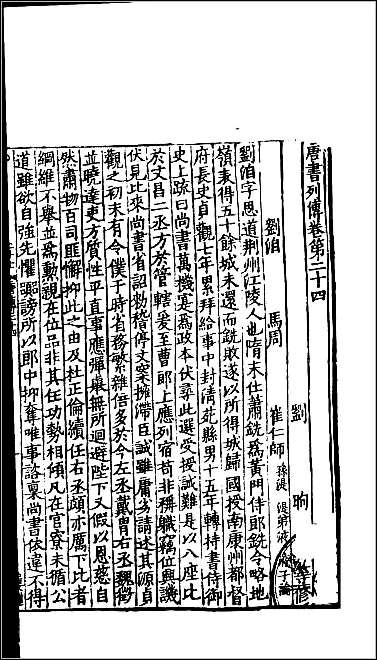 唐書列傳卷第二十四
劉昫 等修
劉洎 馬周 崔仁師 孫湜 湜弟液 液子論
劉洎字思道荆州江陵人也隋末仕蕭銑為黄門侍郎銑令略地
嶺表得五十餘城未還而銑敗遂以所得城歸國授南康州都督
府長史貞觀七年累拜給事中封清苑縣男十五年轉持書侍御
史上疏曰尚書萬機寔為政本伏尋此選受授誠難是以八座比
於文昌二丞方於管轄爰至曹郎上應列宿苟非稱職竊位興譏
伏見比來尚書省詔勑稽停文案擁滯臣誠雖庸劣請述其源貞
觀之初未有令僕于時省務繁雜倍多於今左丞戴胄右丞魏徵
並曉達吏方質性平直事應彈舉無所迴避陛下又假以恩慈自
然肅物百司匪懈抑此之由及杜正倫續任右丞頗亦厲下比者
綱維不舉並為勲親在位品非其任功勢相傾凡在官寮未循公
道雖欲自強先懼囂謗所以郎中抑奪唯事諮稟尚書依違不得